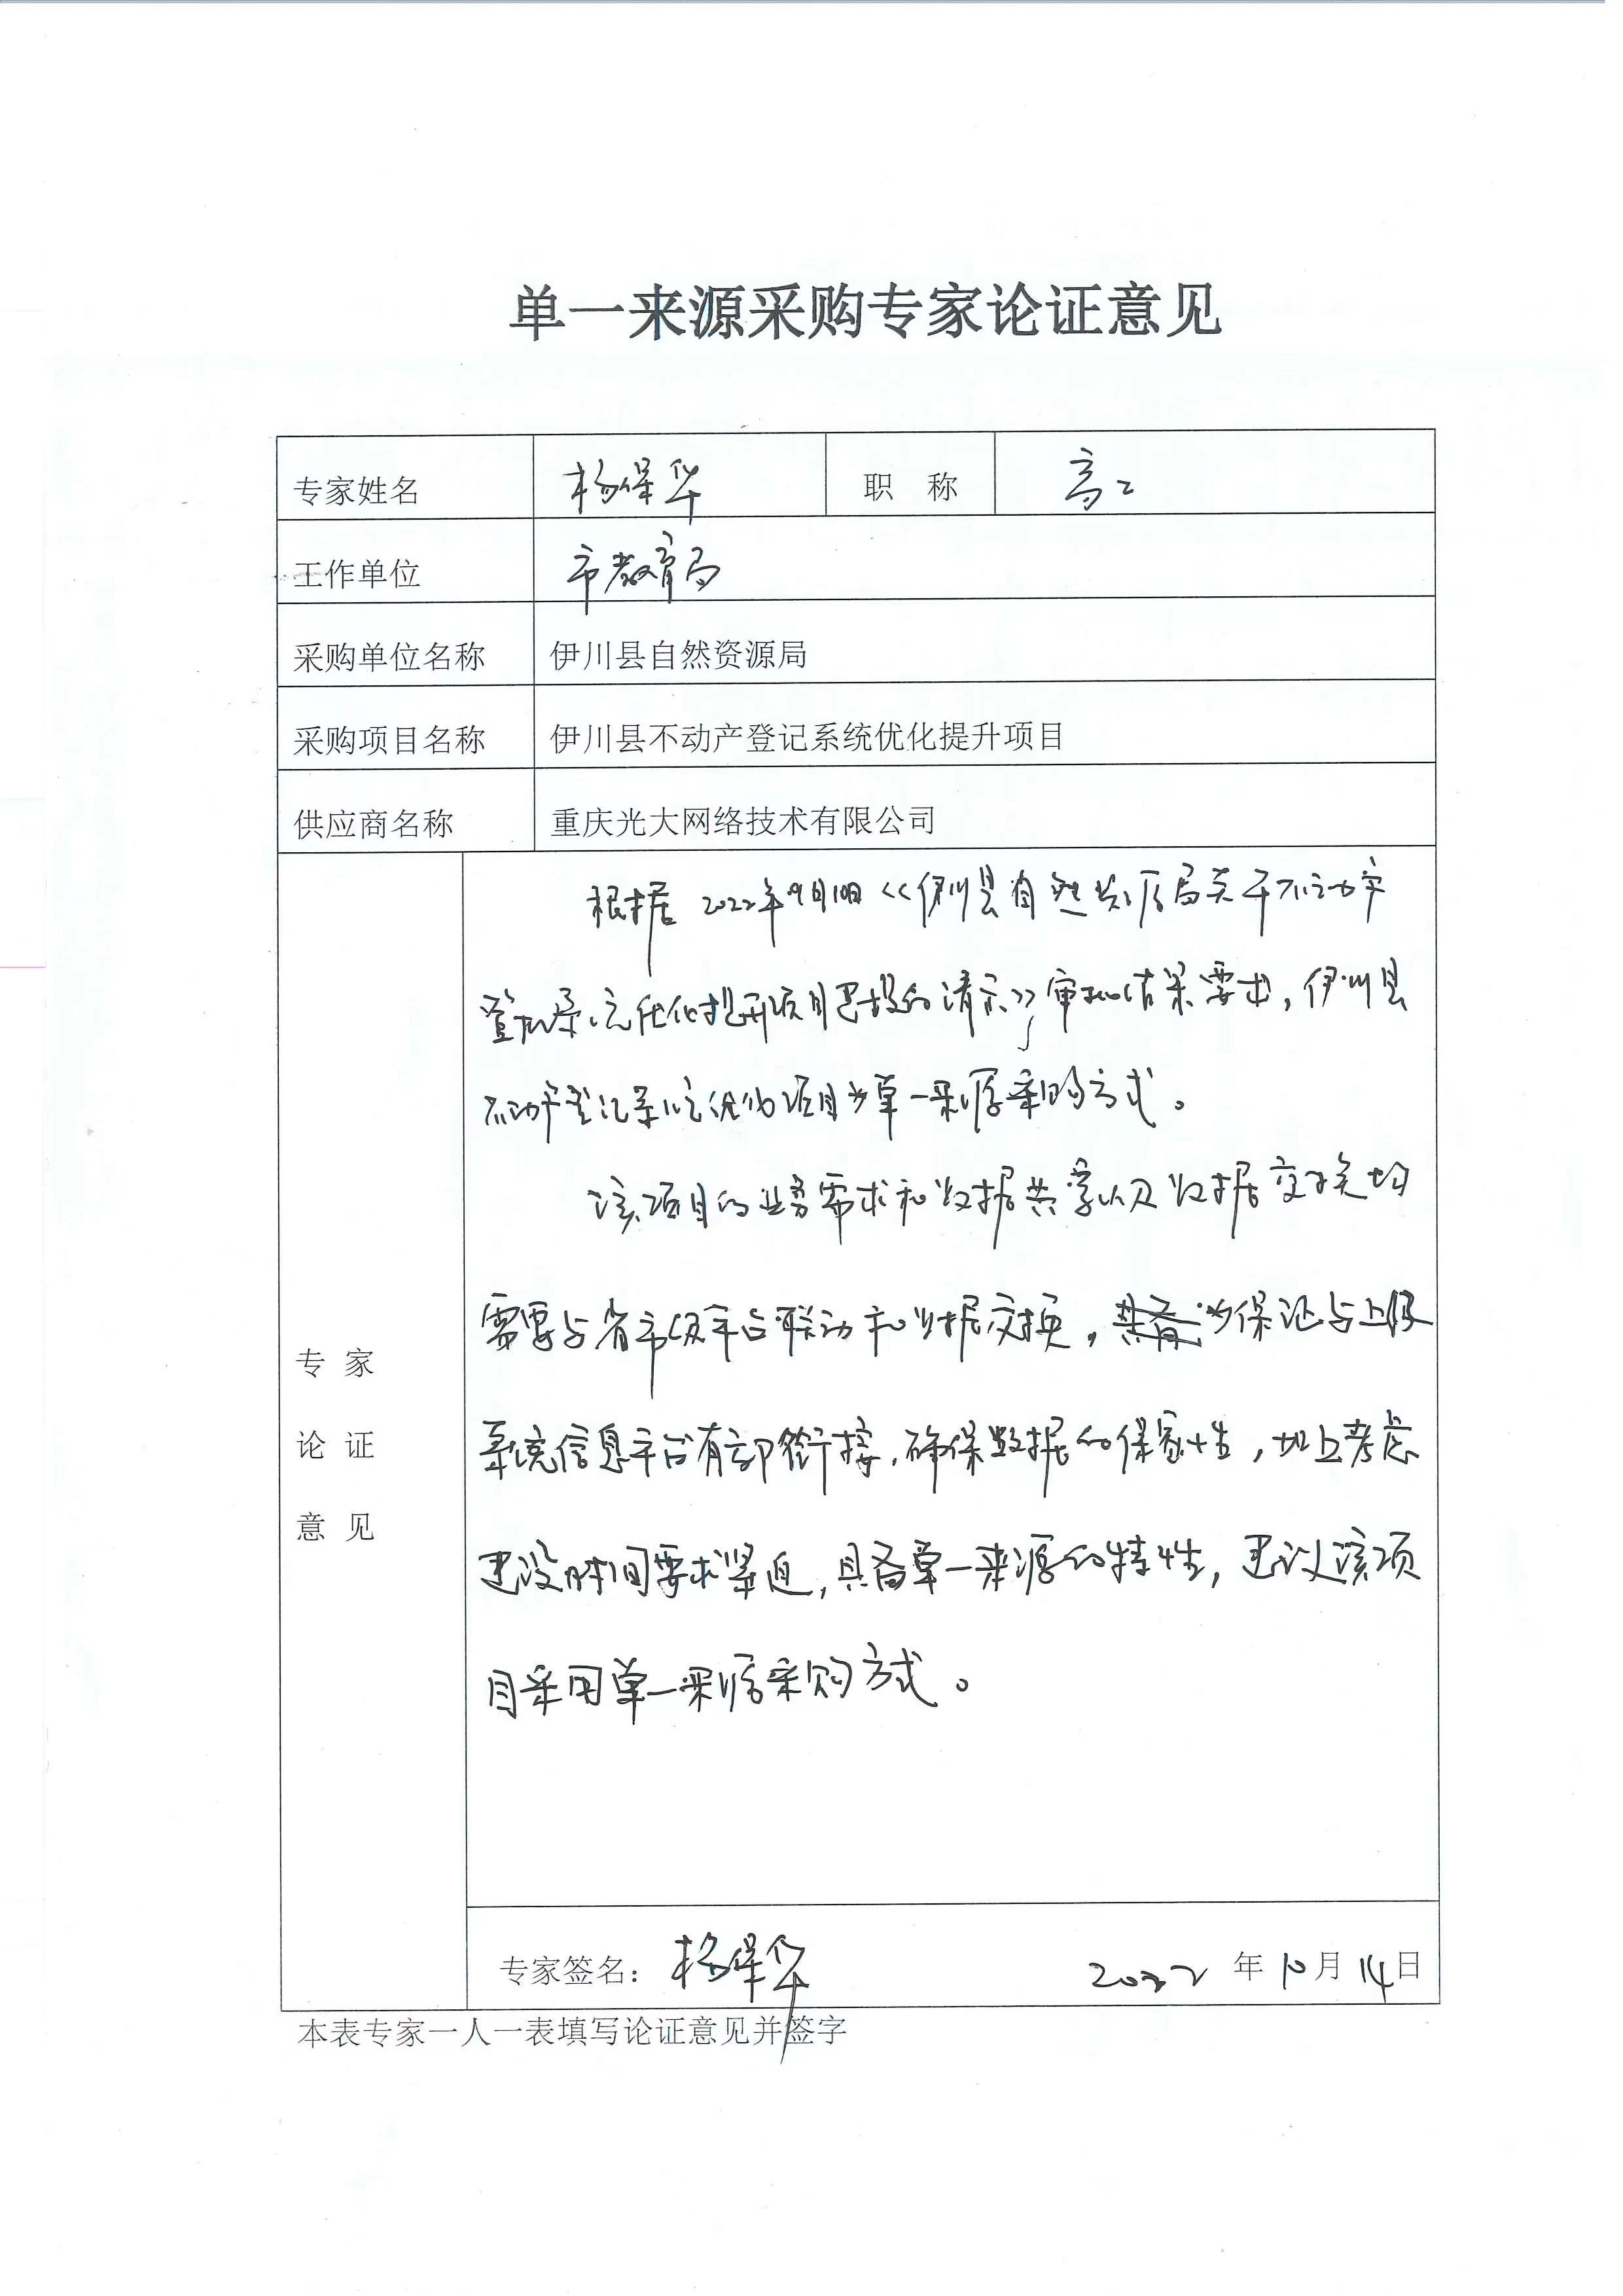 单一来源采购专家论证意见
专家姓名 杨保华 职 称 高工
工作单位 市教育局
采购单位名称 伊川县自然资源局
采购项目名称 伊川县不动产登记系统优化提升项目
供应商名称 重庆光大网络技术有限公司
专 家
论 证
意 见
根据 2022年9月10日《伊川县自然资源局关于不动产
登记系统优化提升项目建设的请示》审批结果要求，伊川县
不动产登记系统优化项目为单一来源采购方式。
该项目的业务需求和数据共享以及数据交换均
需要与省市级平台联动和数据交换，为保证与上级
系统信息平台有部衔接，确保数据的保密性，加上考虑
建设时间要求紧迫，具备单一来源的特性，建议该项
目采用单一来源采购方式。
专家签名： 杨保华 2022 年 10 月 14 日
本表专家一人一表填写论证意见并签字